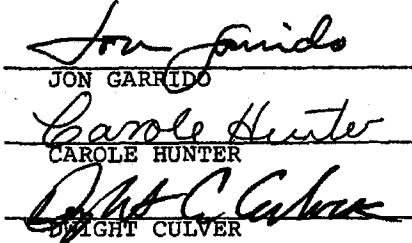 Jon Garrido
JON GARRIDO
Carole Hunter
CAROLE HUNTER
Dwight C Culver
DWIGHT CULVER